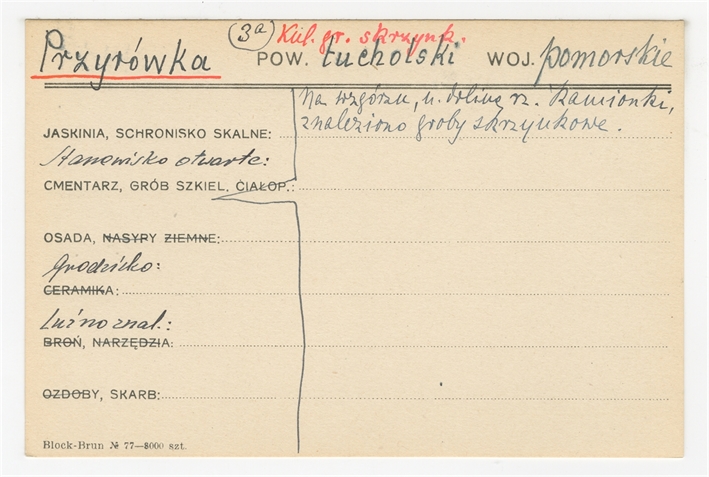 (3a) Kul. gr. skrzynk.
Przyrówka POW. tucholski WOJ. pomorskie
Na wzgórzu, n. doliną rz. Kamionki,
znaleziono groby skrzynkowe.
JASKINIA, SCHRONISKO SKALNE:
Stanowisko otwarte:
CMENTARZ, GRÓB SZKIEL. CIAŁOP.:
OSADA, NASYPY ZIEMNE:
Grodzisko:
CERAMIKA:
Luźno znal.:
BROŃ, NARZĘDZIA:
OZDOBY, SKARB:
Block-Brun № 77—8000 szt.